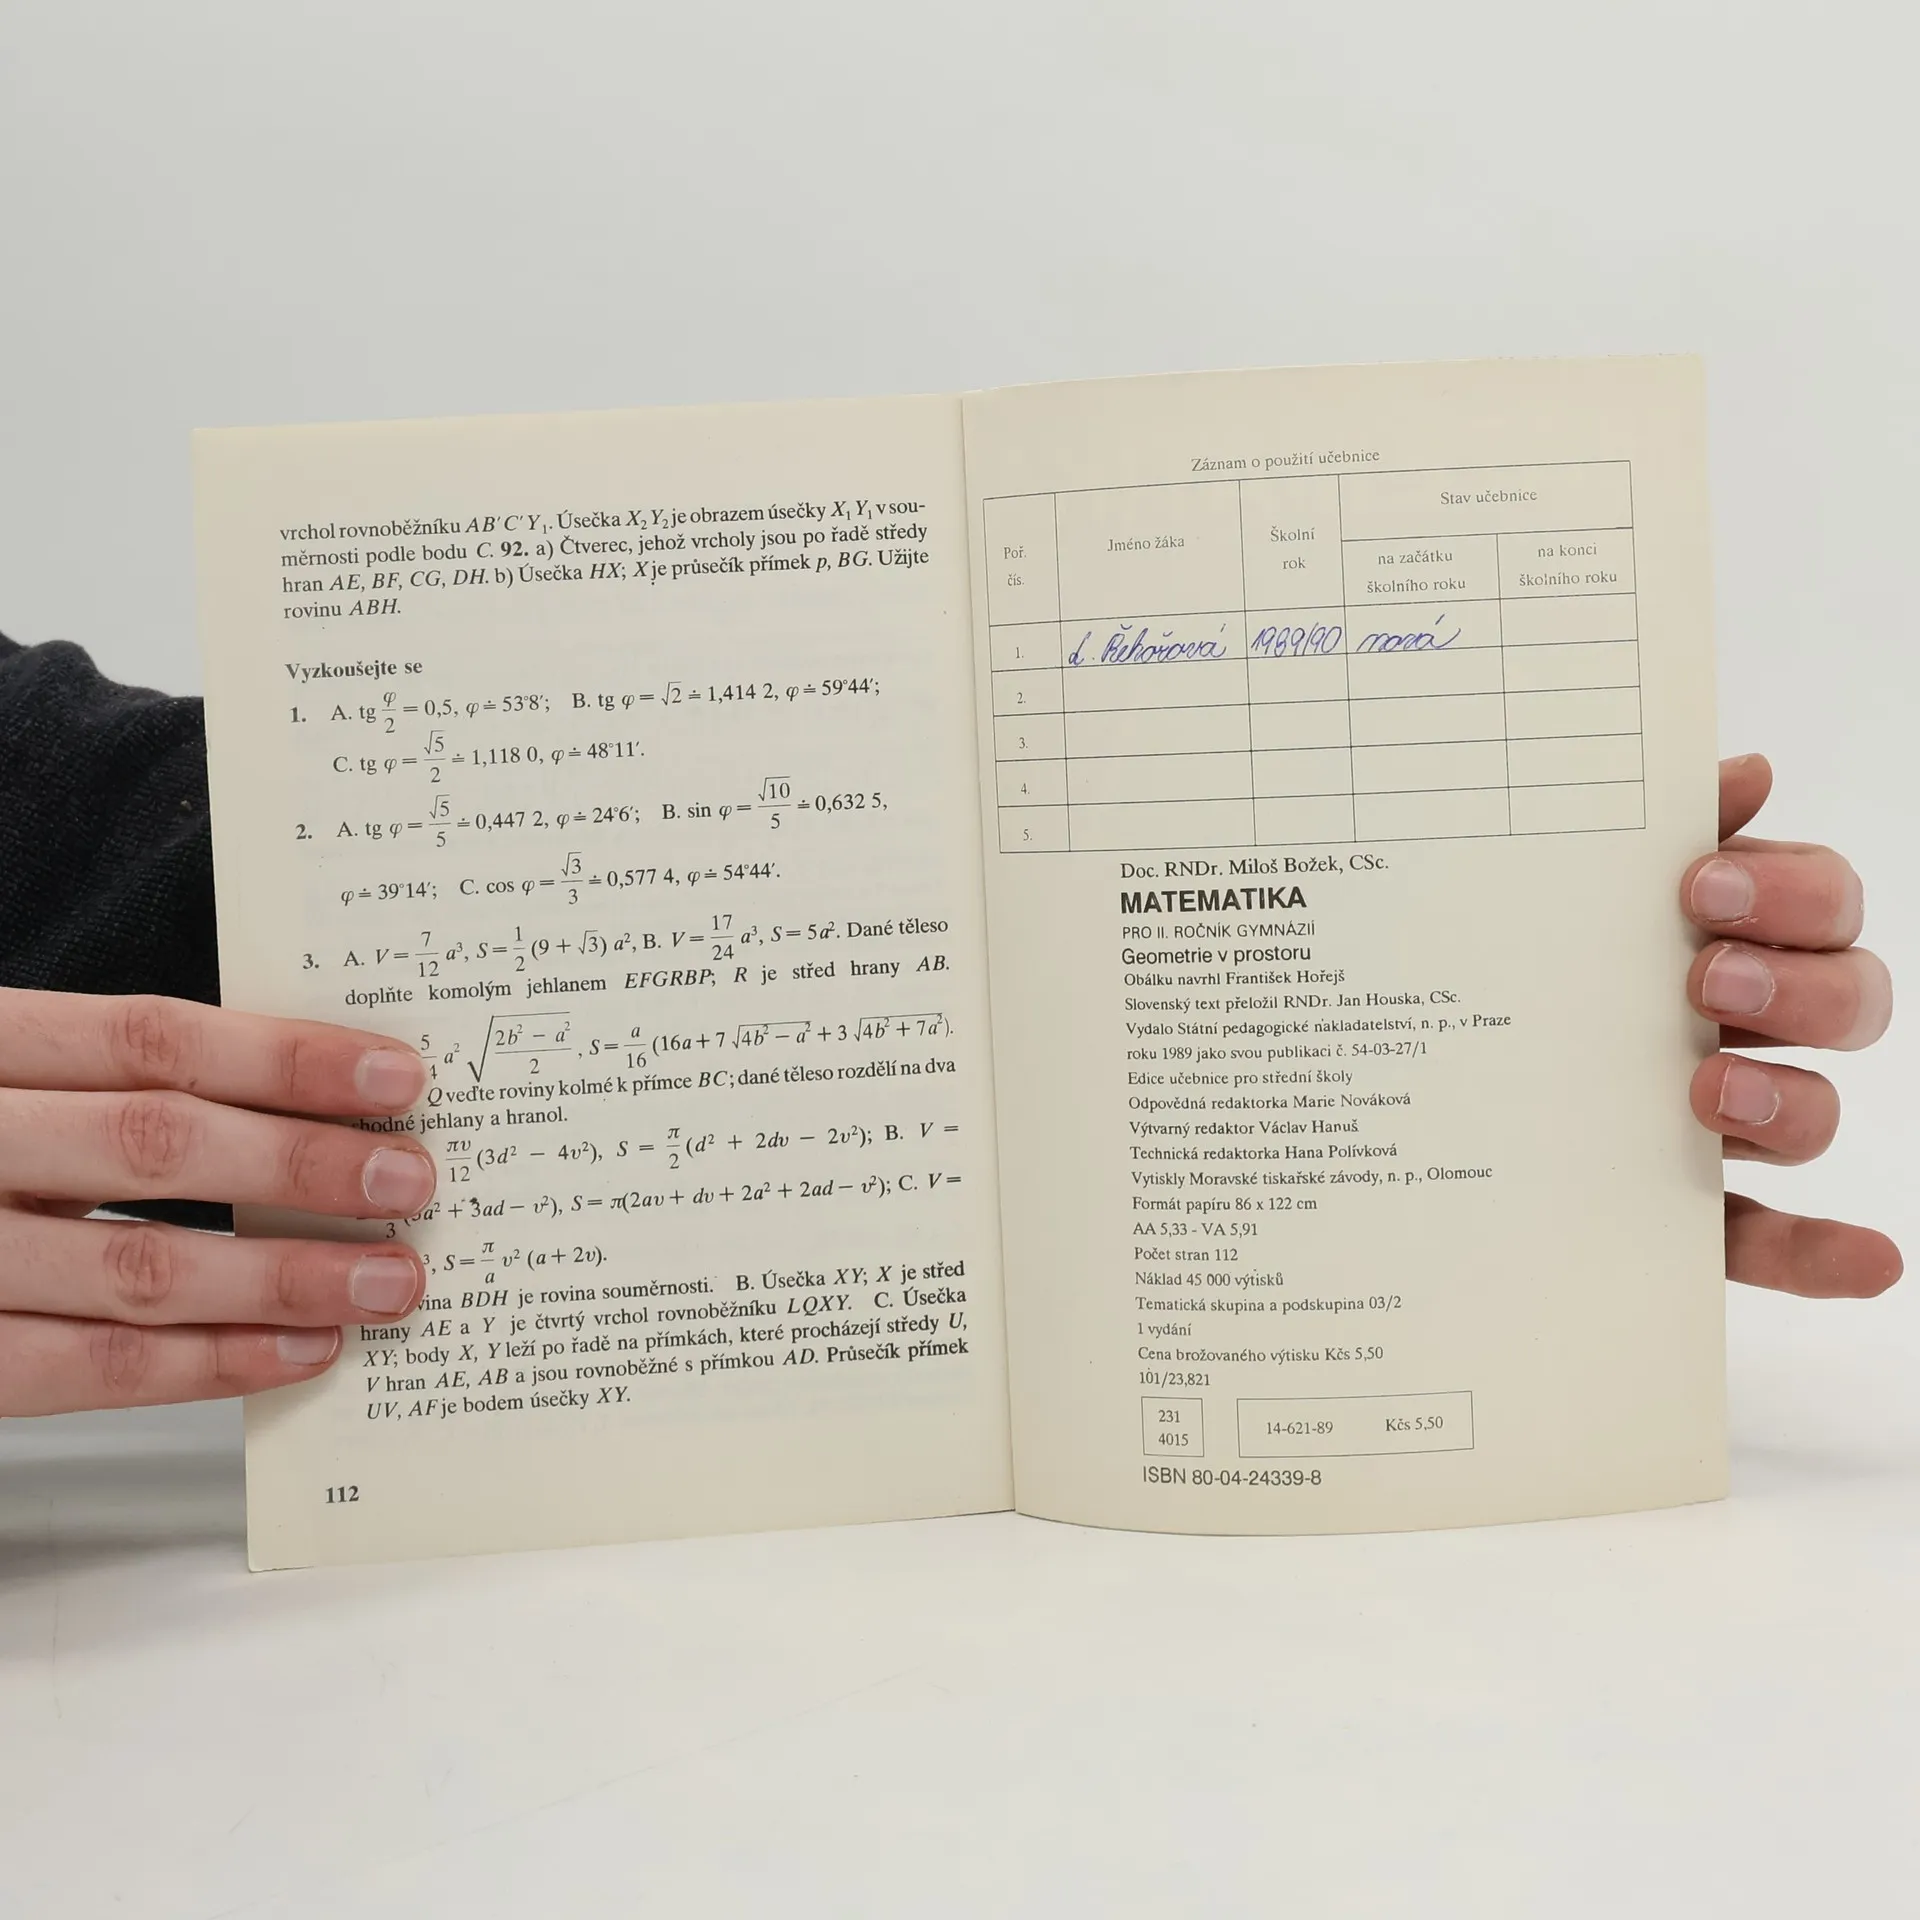 vrchol rovnoběžníku AB'C'Y₁. Úsečka X₂Y₂ je obrazem úsečky X₁Y₁ v sou-
měrnosti podle bodu C. 92. a) Čtverec, jehož vrcholy jsou po řadě středy
hran AE, BF, CG, DH. b) Úsečka HX; X je průsečík přímek p, BG. Užijte
rovinu ABH.
Vyzkoušejte se
1. A. tg φ/2 = 0,5, φ ≐ 53°8′; B. tg φ = √2 ≐ 1,414 2, φ ≐ 59°44′;
C. tg φ = √5/2 ≐ 1,118 0, φ ≐ 48°11′.
2. A. tg φ = √5/5 ≐ 0,447 2, φ ≐ 24°6′; B. sin φ = √10/5 ≐ 0,632 5,
φ ≐ 39°14′; C. cos φ = √3/3 ≐ 0,577 4, φ ≐ 54°44′.
3. A. V = 7/12 a³, S = 1/2 (9 + √3) a², B. V = 17/24 a³, S = 5a². Dané těleso
doplňte komolým jehlanem EFGRBP; R je střed hrany AB.
5/4 a² √((2b² − a²)/2), S = a/16 (16a + 7 √(4b² − a²) + 3 √(4b² + 7a²)).
Q veďte roviny kolmé k přímce BC; dané těleso rozdělí na dva
hodné jehlany a hranol.
πv/12 (3d² − 4v²), S = π/2 (d² + 2dv − 2v²); B. V =
3 (3a² + 3ad − v²), S = π(2av + dv + 2a² + 2ad − v²); C. V =
³, S = π/a v² (a + 2v).
vina BDH je rovina souměrnosti. B. Úsečka XY; X je střed
hrany AE a Y je čtvrtý vrchol rovnoběžníku LQXY. C. Úsečka
XY; body X, Y leží po řadě na přímkách, které procházejí středy U,
V hran AE, AB a jsou rovnoběžné s přímkou AD. Průsečík přímek
UV, AF je bodem úsečky XY.
112
Záznam o použití učebnice
Poř. čís.
Jméno žáka
Školní rok
Stav učebnice
na začátku školního roku
na konci školního roku
1. L. Řehořová 1989/90 nová
2.
3.
4.
5.
Doc. RNDr. Miloš Božek, CSc.
MATEMATIKA
PRO II. ROČNÍK GYMNÁZIÍ
Geometrie v prostoru
Obálku navrhl František Hořejš
Slovenský text přeložil RNDr. Jan Houska, CSc.
Vydalo Státní pedagogické nakladatelství, n. p., v Praze
roku 1989 jako svou publikaci č. 54-03-27/1
Edice učebnice pro střední školy
Odpovědná redaktorka Marie Nováková
Výtvarný redaktor Václav Hanuš
Technická redaktorka Hana Polívková
Vytiskly Moravské tiskařské závody, n. p., Olomouc
Formát papíru 86 x 122 cm
AA 5,33 - VA 5,91
Počet stran 112
Náklad 45 000 výtisků
Tematická skupina a podskupina 03/2
1 vydání
Cena brožovaného výtisku Kčs 5,50
101/23,821
231
4015
14-621-89 Kčs 5,50
ISBN 80-04-24339-8